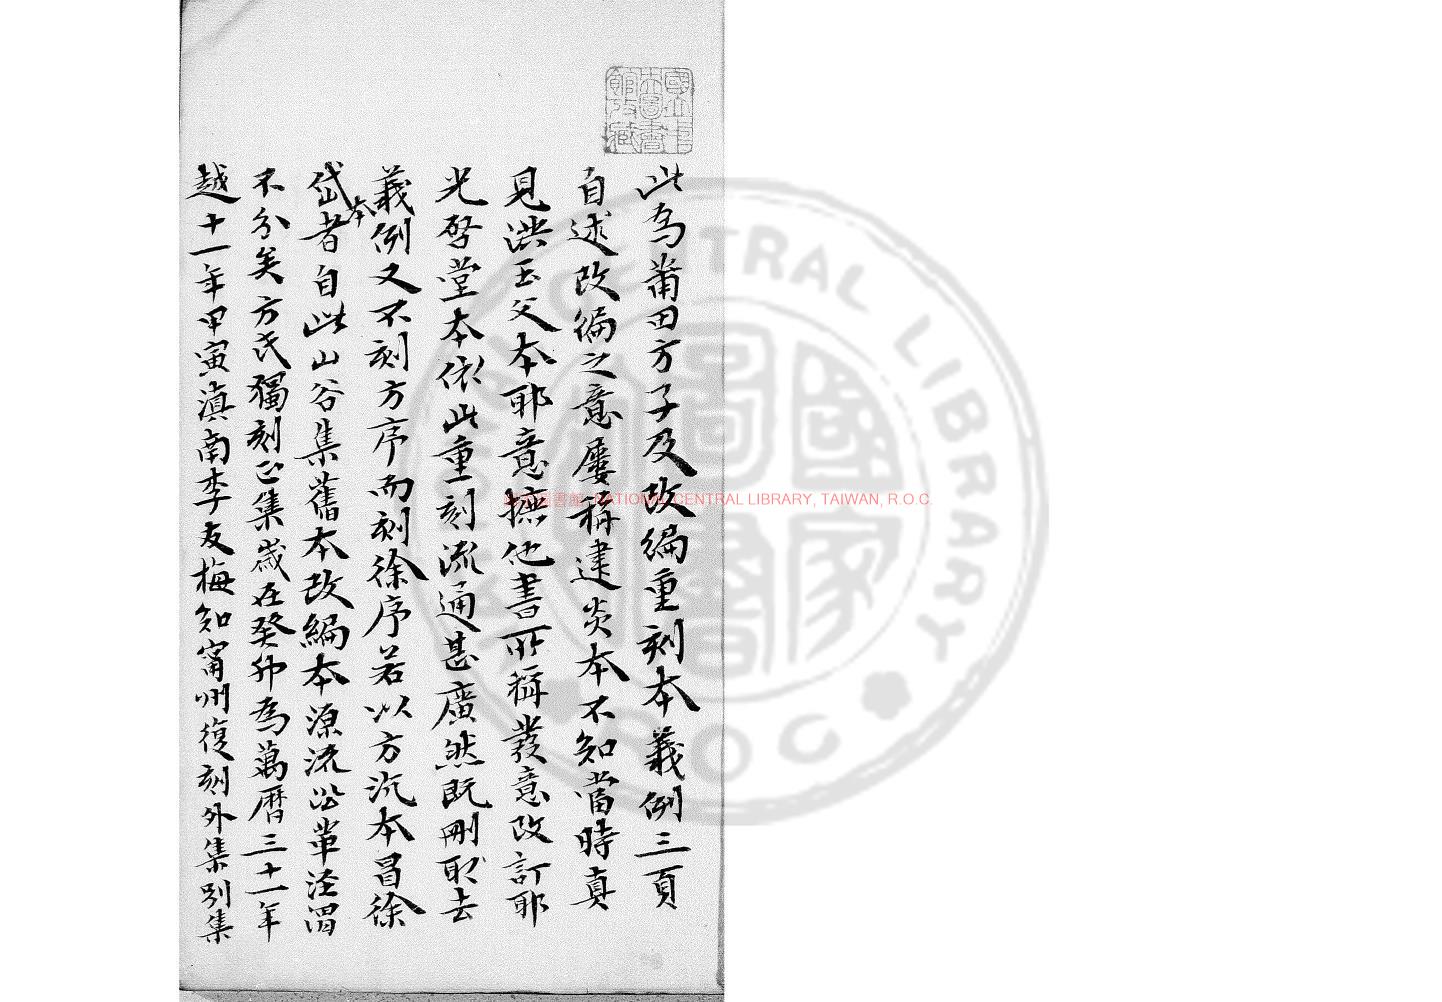 國立中
央圖書
館收藏
此為莆田方子及改編重刻本義例三頁
自述改編之意屢稱建炎本不知當時真
見洪玉父本耶意摭他書所稱發意改訂耶
光啓堂本依此重刻流通甚廣然既刪取去
義例又不刻方序而刻徐序若以方沆本冒徐
岱本者自此山谷集舊本改編本源流涇渭
不分矣方氏獨刻正集歲在癸卯為萬曆三十一年
越十一年甲寅滇南李友梅知甯州復刻外集別集
國家圖書館 NATIONAL CENTRAL LIBRARY, TAIWAN, R.O.C.
NATIONAL CENTRAL LIBRARY
ROC
國家圖書